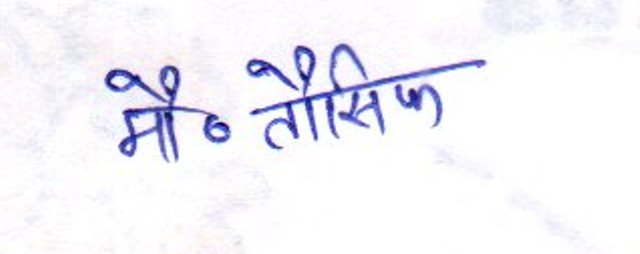 मौ० तौसिफ